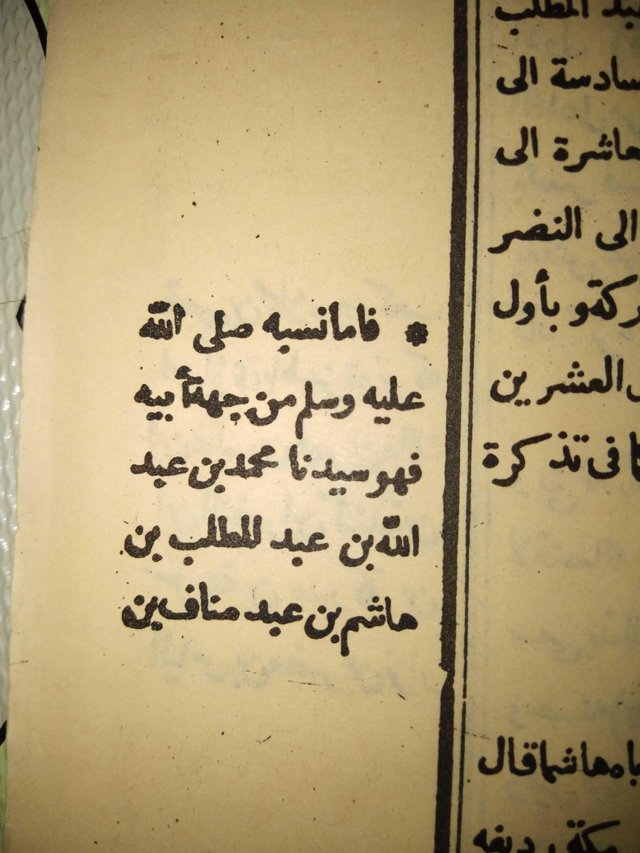 * فاما نسبه صلى الله
عليه وسلم من جهة أبيه
فهو سيدنا محمد بن عبد
الله بن عبد المطلب بن
هاشم بن عبد مناف بن
عبد المطلب
سادسة الى
عاشرة الى
الى النضر
ركة وبأول
العشرين
فى تذكرة
هاشما قال
رديفه